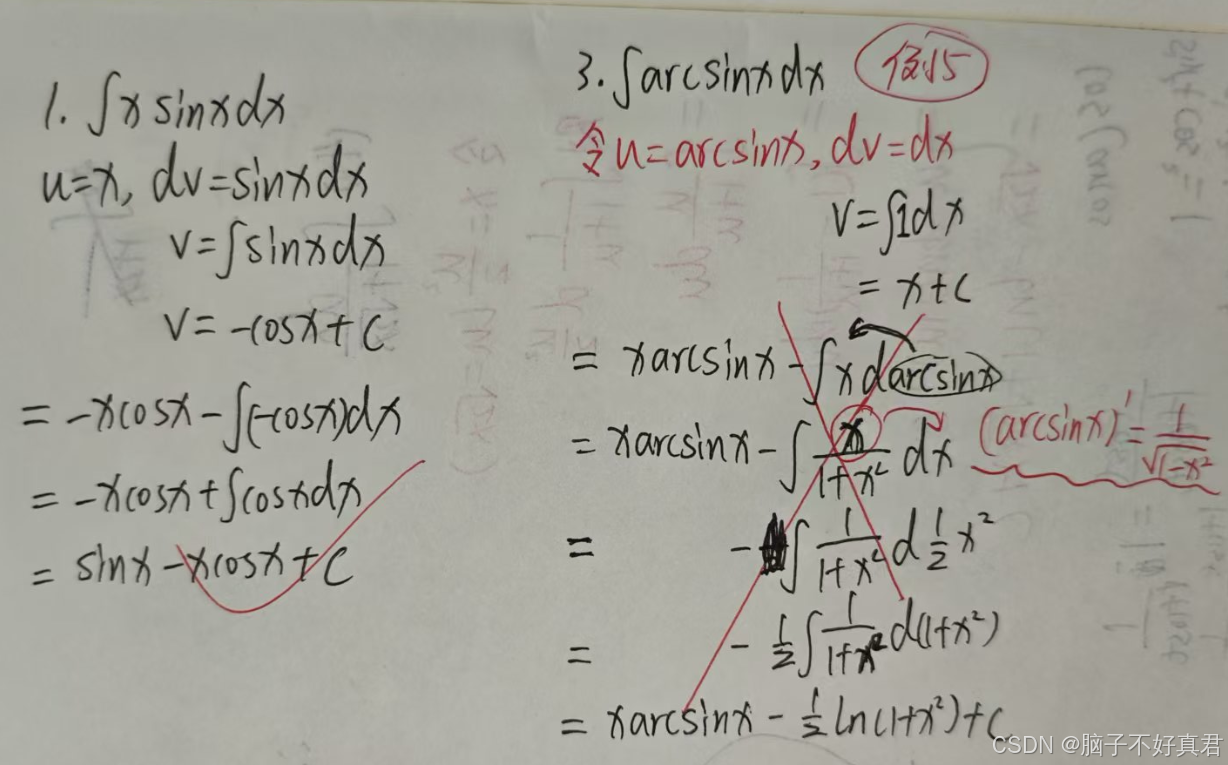 1. ∫x sinx dx
u=x, dv=sinxdx
v=∫sinxdx
v=-cosx+C
= -xcosx-∫(-cosx)dx
= -xcosx+∫cosxdx
= sinx-xcosx+C
3. ∫arcsinxdx
令u=arcsinx, dv=dx
v=∫1dx
= x+C
= xarcsinx-∫xdarcsinx
= xarcsinx-∫x/(1+x²) dx (arcsinx)'=1/√(1-x²)
= -∫1/(1+x²) d½x²
= -½∫1/(1+x²) d(1+x²)
= xarcsinx-½ln(1+x²)+C
CSDN @脑子不好真君